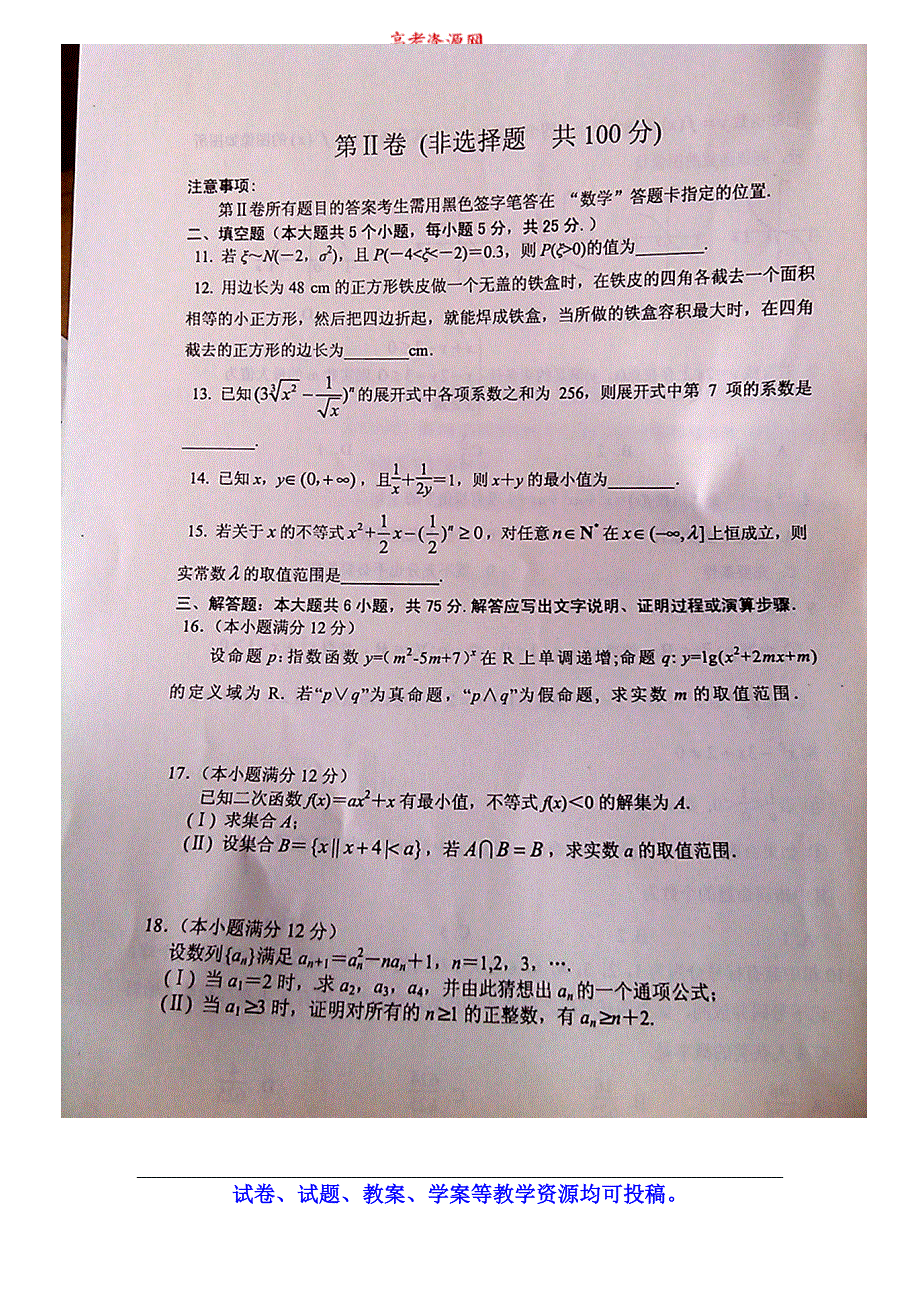 高考资源网
第Ⅱ卷 (非选择题 共100分)
注意事项：
第Ⅱ卷所有题目的答案考生需用黑色签字笔答在 “数学”答题卡指定的位置.
二、填空题（本大题共5个小题，每小题5分，共25分.）
11. 若ξ~N(－2，σ²)，且P(-4<ξ<－2)=0.3，则P(ξ>0)的值为________.
12. 用边长为48 cm的正方形铁皮做一个无盖的铁盒时，在铁皮的四角各截去一个面积
相等的小正方形，然后把四边折起，就能焊成铁盒，当所做的铁盒容积最大时，在四角
截去的正方形的边长为________cm.
13. 已知(3∛x² − 1/√x)ⁿ的展开式中各项系数之和为256，则展开式中第 7 项的系数是
_________.
14. 已知x，y∈(0,+∞)，且1/x+1/2y=1，则x+y的最小值为________.
15. 若关于x的不等式x²+1/2x−(1/2)ⁿ≥0，对任意n∈N*在x∈(−∞,λ]上恒成立，则
实常数λ的取值范围是____________.
三、解答题：本大题共6小题，共75分.解答应写出文字说明、证明过程或演算步骤.
16.（本小题满分12分）
设命题p:指数函数y=（m²-5m+7）ˣ在R上单调递增;命题q: y=lg(x²+2mx+m)
的定义域为R. 若“p∨q”为真命题，“p∧q”为假命题，求实数m的取值范围.
17.（本小题满分12分）
已知二次函数f(x)＝ax²＋x有最小值，不等式f(x)＜0的解集为A.
(Ⅰ)求集合A;
(Ⅱ)设集合B＝{x||x+4|<a}，若A∩B=B，求实数a的取值范围.
18.（本小题满分12分）
设数列{aₙ}满足aₙ₊₁＝aₙ²－naₙ＋1，n＝1,2，3，….
(Ⅰ)当a₁＝2时，求a₂，a₃，a₄，并由此猜想出aₙ的一个通项公式；
(Ⅱ)当a₁≥3时，证明对所有的n≥1的正整数，有aₙ≥n＋2.
试卷、试题、教案、学案等教学资源均可投稿。